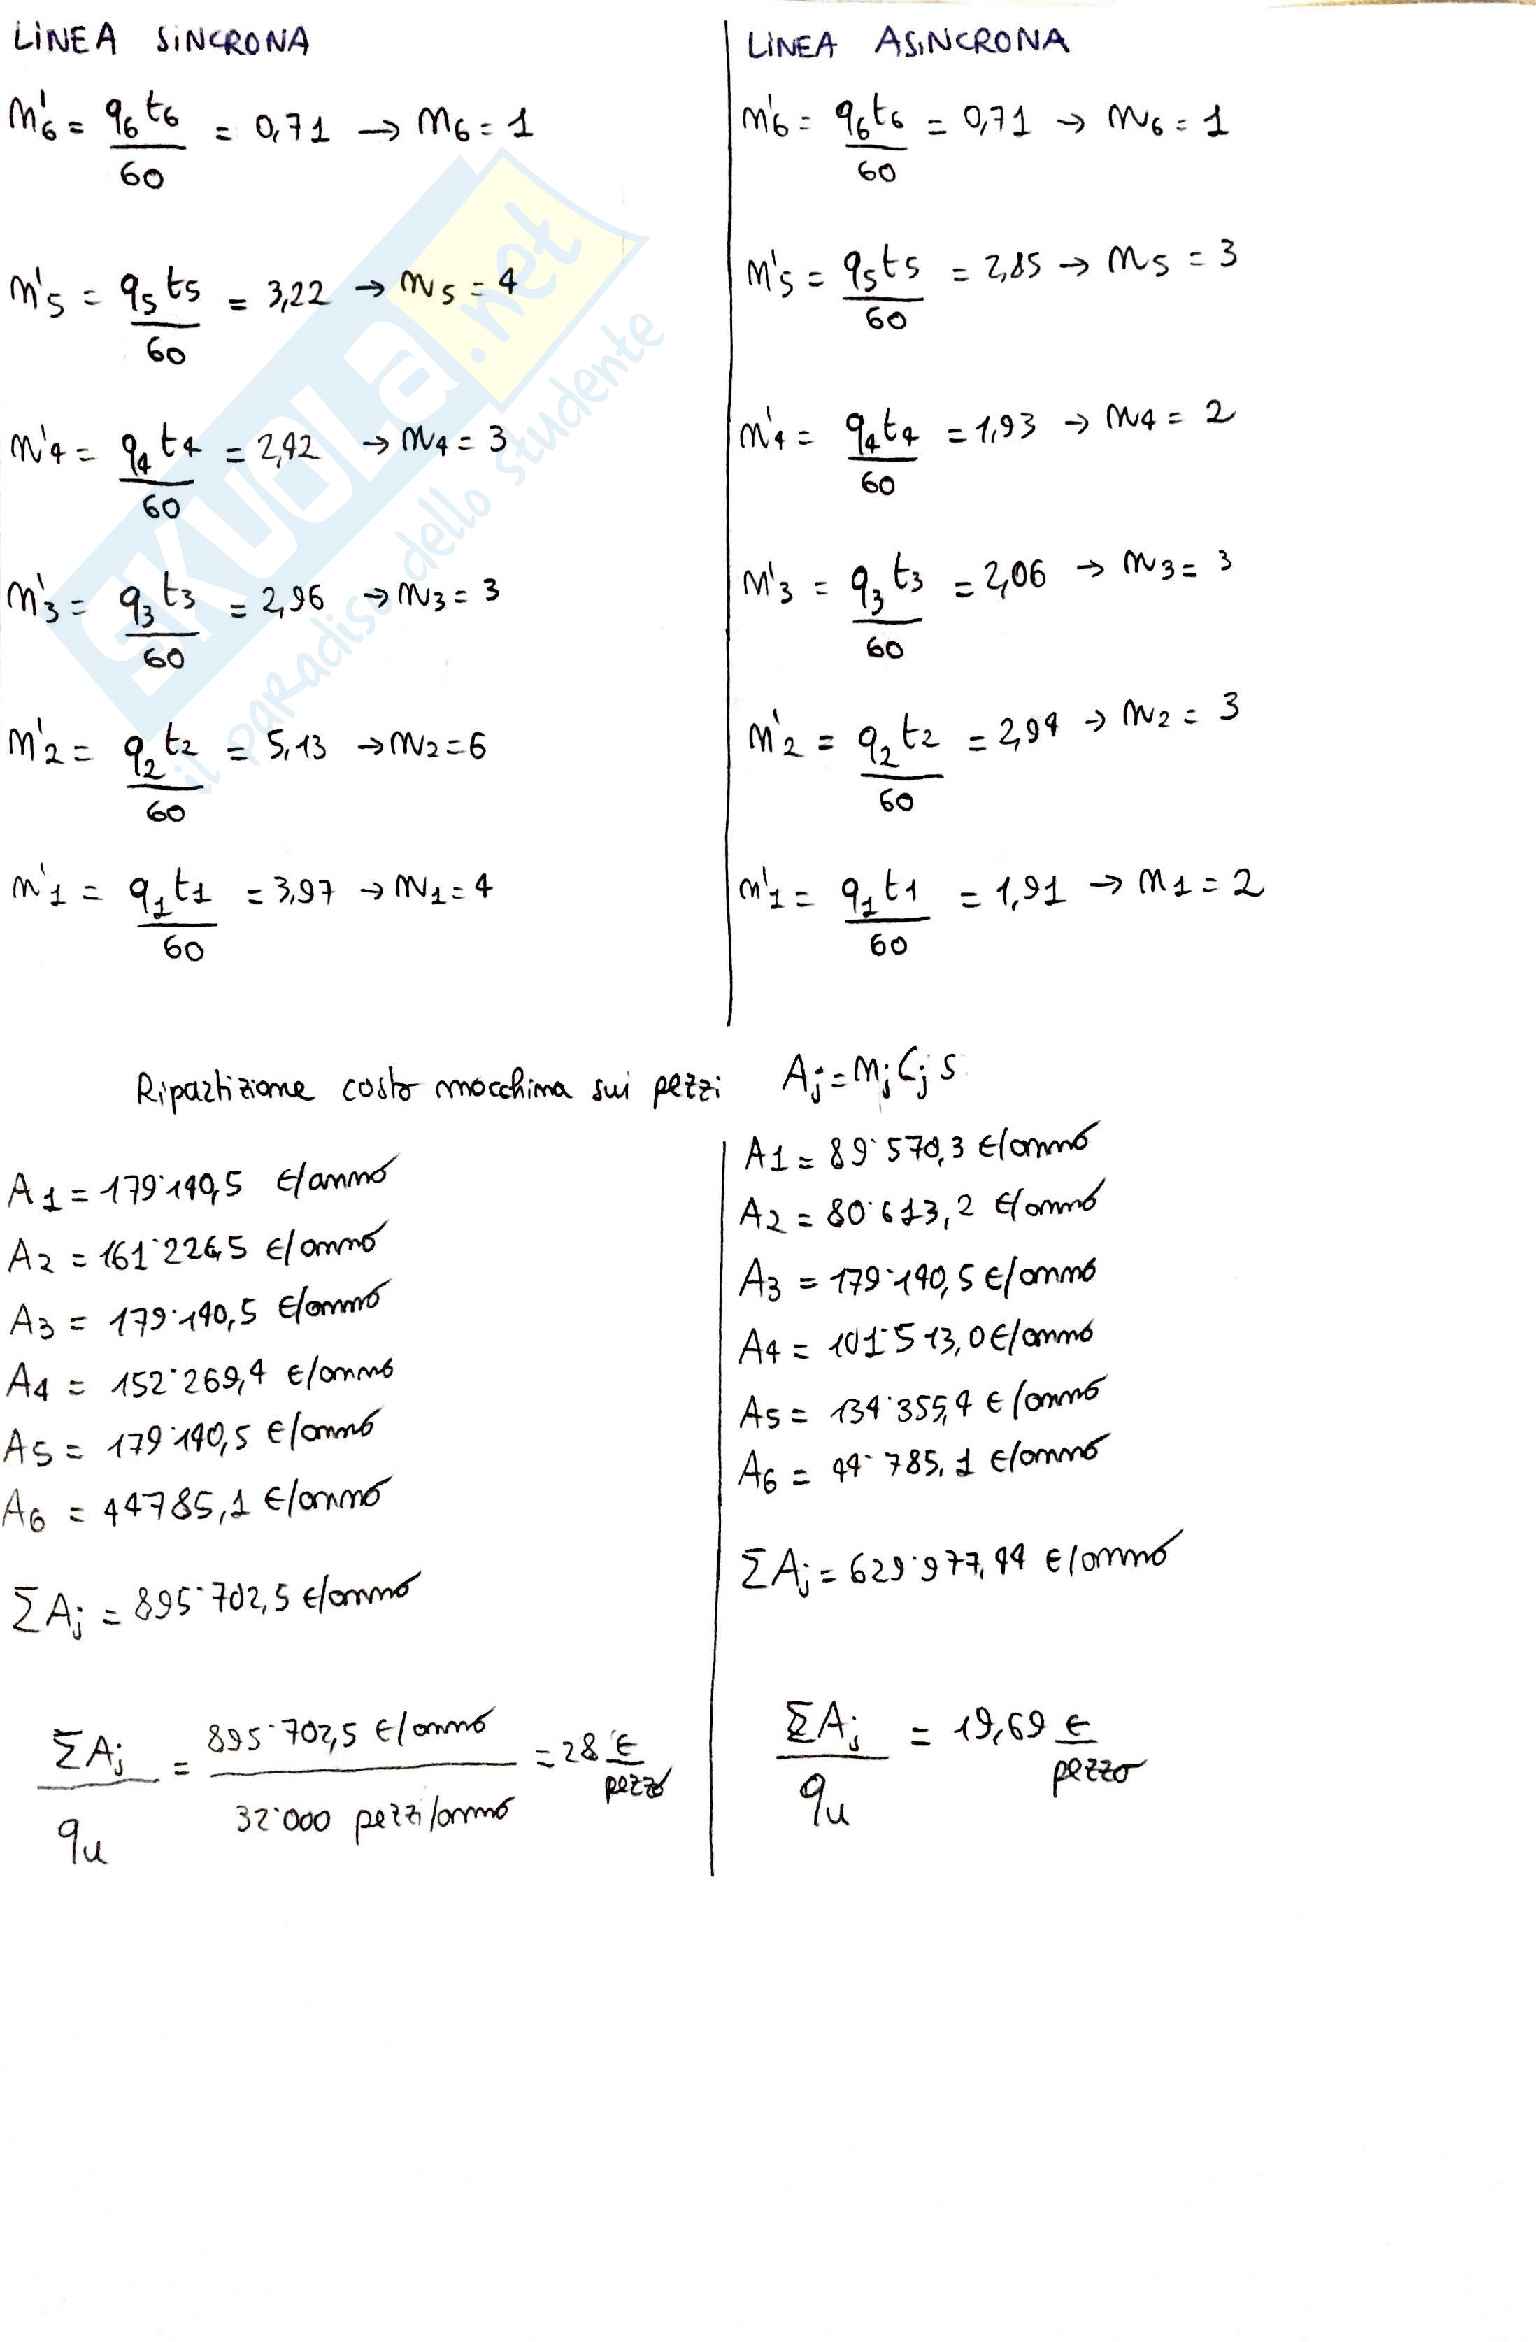 LINEA SINCRONA
m'6 = q6 t6 / 60 = 0,71 → m6 = 1
m'5 = q5 t5 / 60 = 3,22 → m5 = 4
m'4 = q4 t4 / 60 = 2,42 → m4 = 3
m'3 = q3 t3 / 60 = 2,96 → m3 = 3
m'2 = q2 t2 / 60 = 5,13 → m2 = 6
m'1 = q1 t1 / 60 = 3,97 → m1 = 4
LINEA ASINCRONA
m'6 = q6 t6 / 60 = 0,71 → m6 = 1
m'5 = q5 t5 / 60 = 2,85 → m5 = 3
m'4 = q4 t4 / 60 = 1,93 → m4 = 2
m'3 = q3 t3 / 60 = 2,06 → m3 = 3
m'2 = q2 t2 / 60 = 2,94 → m2 = 3
m'1 = q1 t1 / 60 = 1,91 → m1 = 2
Ripartizione costo macchina sui pezzi Aj = mj Cj s
A1 = 179·140,5 €/anno
A2 = 161·226,5 €/anno
A3 = 179·140,5 €/anno
A4 = 152·269,4 €/anno
A5 = 179·140,5 €/anno
A6 = 44785,1 €/anno
ΣAj = 895·702,5 €/anno
ΣAj / qu = 895·702,5 €/anno / 32·000 pezzi/anno = 28 €/pezzo
A1 = 89·570,3 €/anno
A2 = 80·613,2 €/anno
A3 = 179·140,5 €/anno
A4 = 101·513,0 €/anno
A5 = 134·355,4 €/anno
A6 = 44·785,1 €/anno
ΣAj = 629·977,44 €/anno
ΣAj / qu = 19,69 €/pezzo
SKUOLA.net
il paradiso dello studente